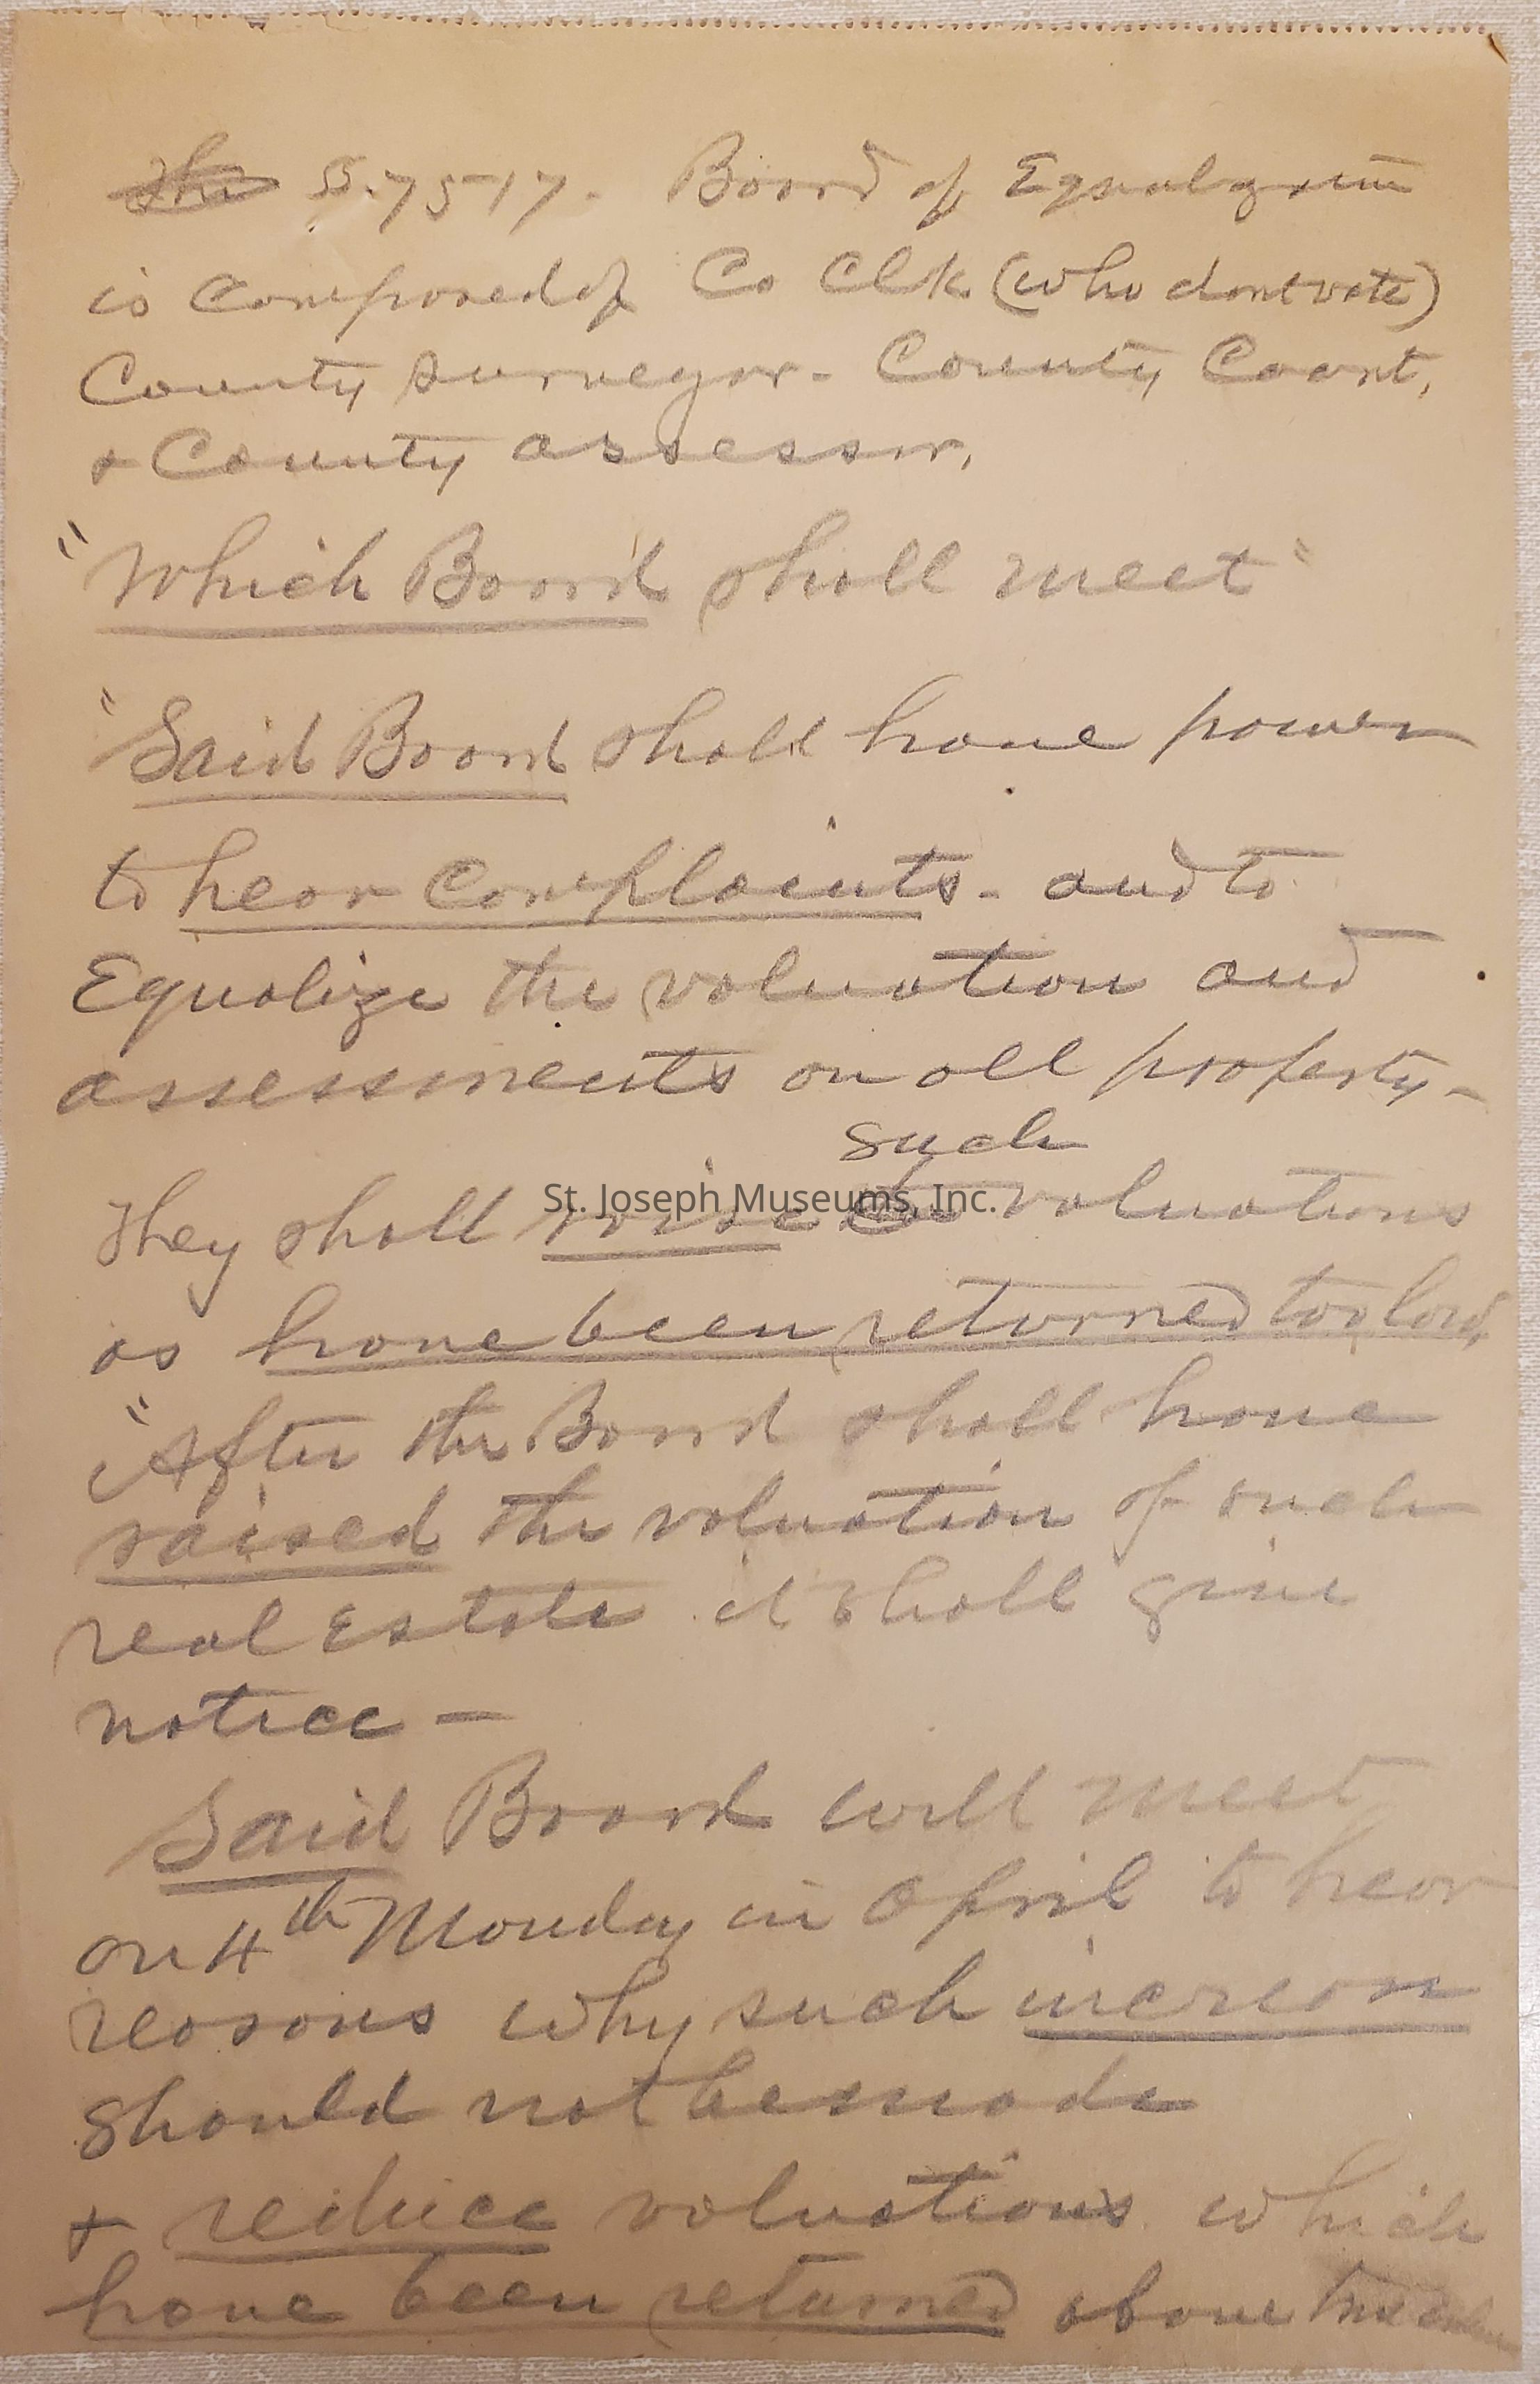 The S.7517. Board of Equalization
is composed of Co Clk (who dont vote)
County surveyor - County Court,
& County assessor,
"Which Board shall meet"
"Said Board shall have power
to hear complaints - and to
Equalize the valuation and
assessments on all property -
such
They shall raise the valuations
St. Joseph Museums, Inc.
as have been returned too low,
"After the Board shall have
raised the valuation of such
real Estate it shall give
notice -
Said Board will meet
on 4th Monday in April to hear
reasons why such increase
should not be made
& reduce valuations which
have been returned above true